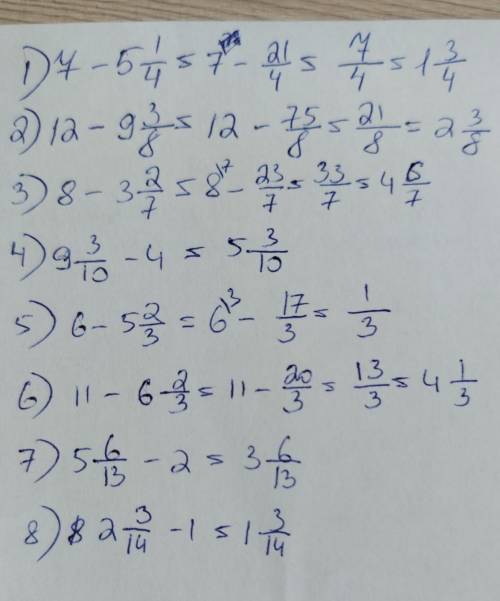 1) 7 - 5 1/4 = 7 - 21/4 = 7/4 = 1 3/4
2) 12 - 9 3/8 = 12 - 75/8 = 21/8 = 2 3/8
3) 8 - 3 2/7 = 8\7 - 23/7 = 33/7 = 4 6/7
4) 9 3/10 - 4 = 5 3/10
5) 6 - 5 2/3 = 6\3 - 17/3 = 1/3
6) 11 - 6 2/3 = 11 - 20/3 = 13/3 = 4 1/3
7) 5 6/13 - 2 = 3 6/13
8) 2 3/14 - 1 = 1 3/14